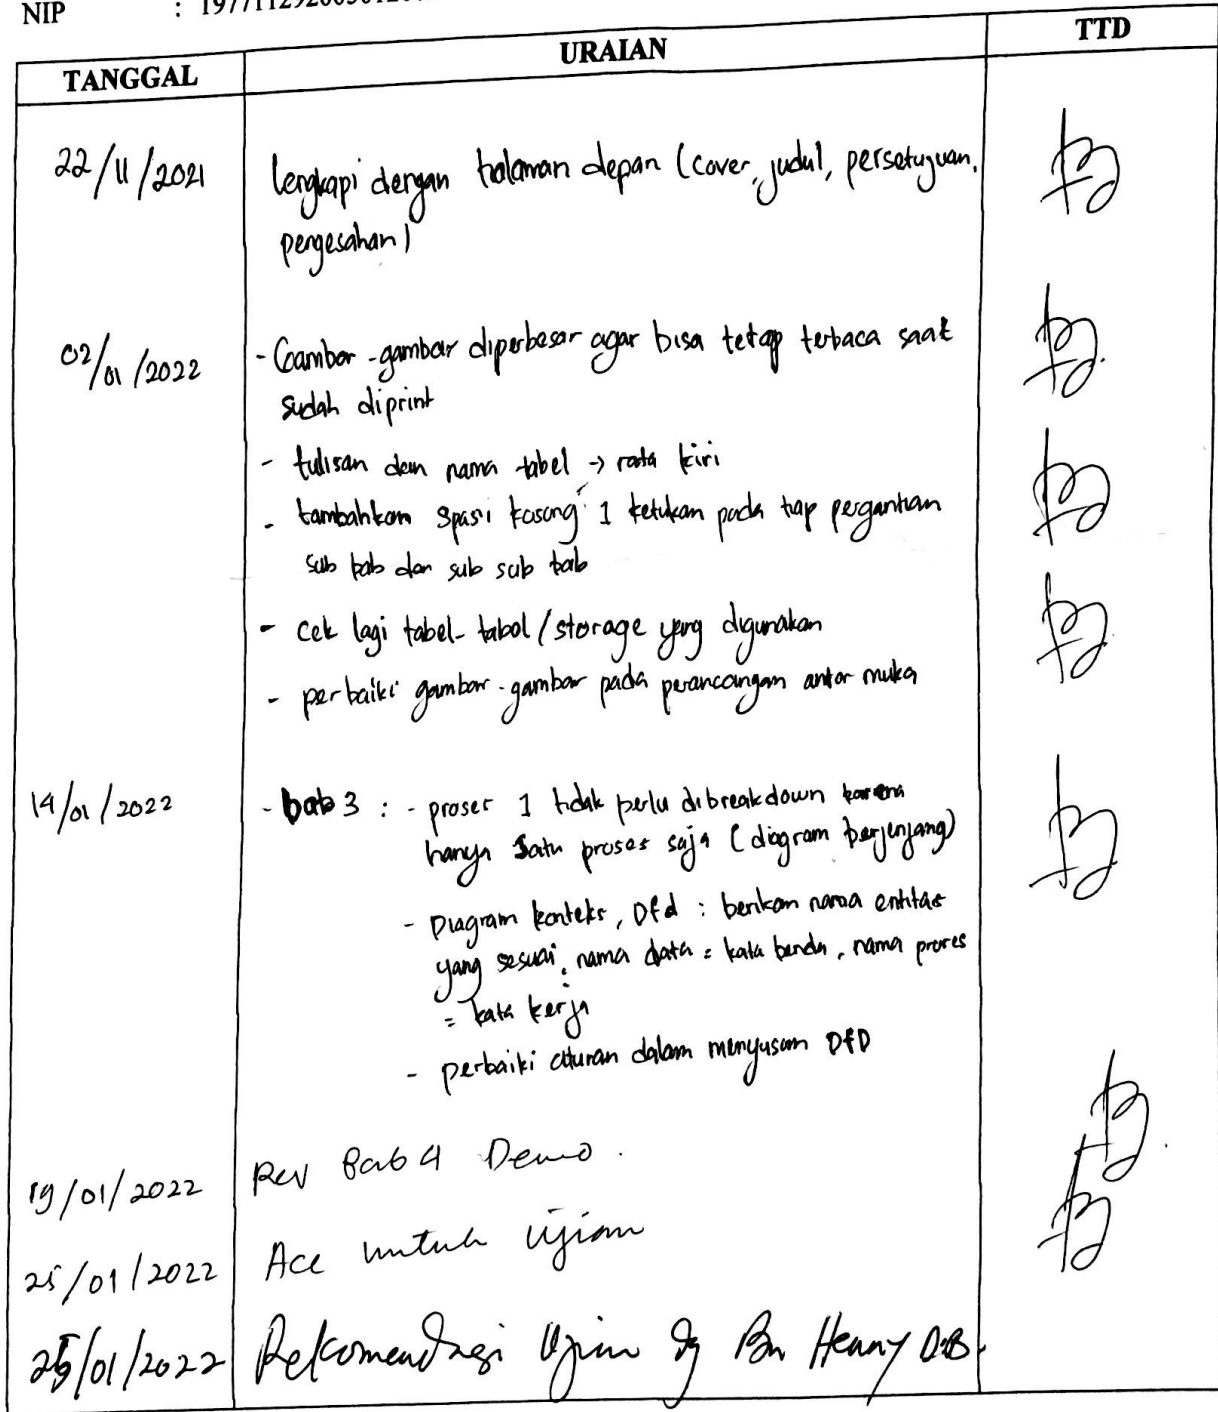 NIP :
TANGGAL URAIAN TTD
22/11/2021 lengkapi dengan halaman depan (cover, judul, persetujuan,
pengesahan)
02/01/2022 - Gambar-gambar diperbesar agar bisa tetap terbaca saat
sudah diprint
- tulisan dan nama tabel → rata kiri
- tambahkan spasi kosong 1 ketukan pada tiap pergantian
sub bab dan sub sub bab
- cek lagi tabel-tabel/storage yang digunakan
- perbaiki gambar-gambar pada perancangan antar muka
14/01/2022 - bab 3 : - proses 1 tidak perlu dibreakdown karena
hanya satu proses saja (diagram berjenjang)
- Diagram konteks, Dfd : berikan nama entitas
yang sesuai, nama data = kata benda, nama proses
= kata kerja
- perbaiki aturan dalam menyusun DfD
19/01/2022 Rev Bab 4 Demo.
25/01/2022 Acc untuk Ujian
/01/2022 Rekomendasi Ujian dg Bu Henny